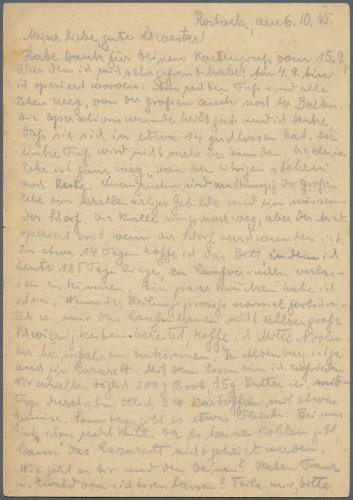 Rostock, den 6.10.45.
Meine liebe gute Schwester!
Habe Dank für Deinen Kartengruß vom 15.9.,
über den ich mich sehr gefreut habe. Am 4.9. bin
ich operiert worden. Am rechten Fuß sind alle
Zehen weg, von der großen auch noch der Ballen.
Die Operationswunde heilt gut und ich denke,
daß sie sich in etwa 14 geschlossen hat. Der
linke Fuß wird nicht mehr verbunden, die kleine
Zehe ist ganz weg, von den übrigen stehen
noch Reste. Unangenehm sind am Stumpf der großen
Zehe ein krallenartiges Gebilde und ein
der Schorf. Die Kralle muß noch weg, aber der Arzt
operiert erst wenn der Schorf verschwunden ist.
In etwa 14 Tagen hoffe ich das Bett, in dem ich
heute 125 Tage liege, zu Laufversuchen verlas-
sen zu können. Ein paar Krücken habe ich
schon. Wenn der Heilungsprozeß normal fortschrei-
tet u. mir das Laufen lernen nicht allzu große
Schwierigkeiten bereitet, hoffe ich Mitte Novem-
ber heimfahren zu können. In Altenburg ist ja
auch ein Lazarett. Mit dem Essen bin ich zufrieden.
Wir erhalten täglich 300g Brot 15g Butter u. mit-
tag durchschnittlich 2 Kartoffeln mit etwas
Gemüse. Sonntags gibt es etwas Fleisch. Bei uns
ist schon recht kalt, da es keine Kohlen gibt,
kann das Lazarett nicht geheizt werden.
Wie geht es Dir und den Deinen? Haben Franz
u. Ewald von sich hören lassen? Teile mir, bitte